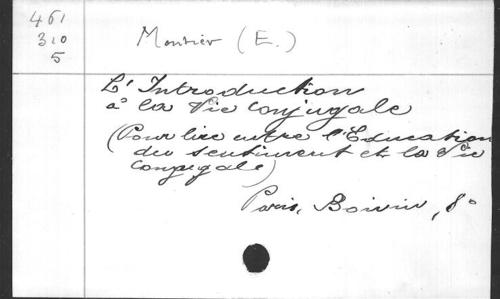 461
310
5
Montier (E.)
L'Introduction
à la Vie Conjugale
(Pour lire entre l'Education
du sentiment et la Vie
Conjugale)
Paris, Boivin, 8°